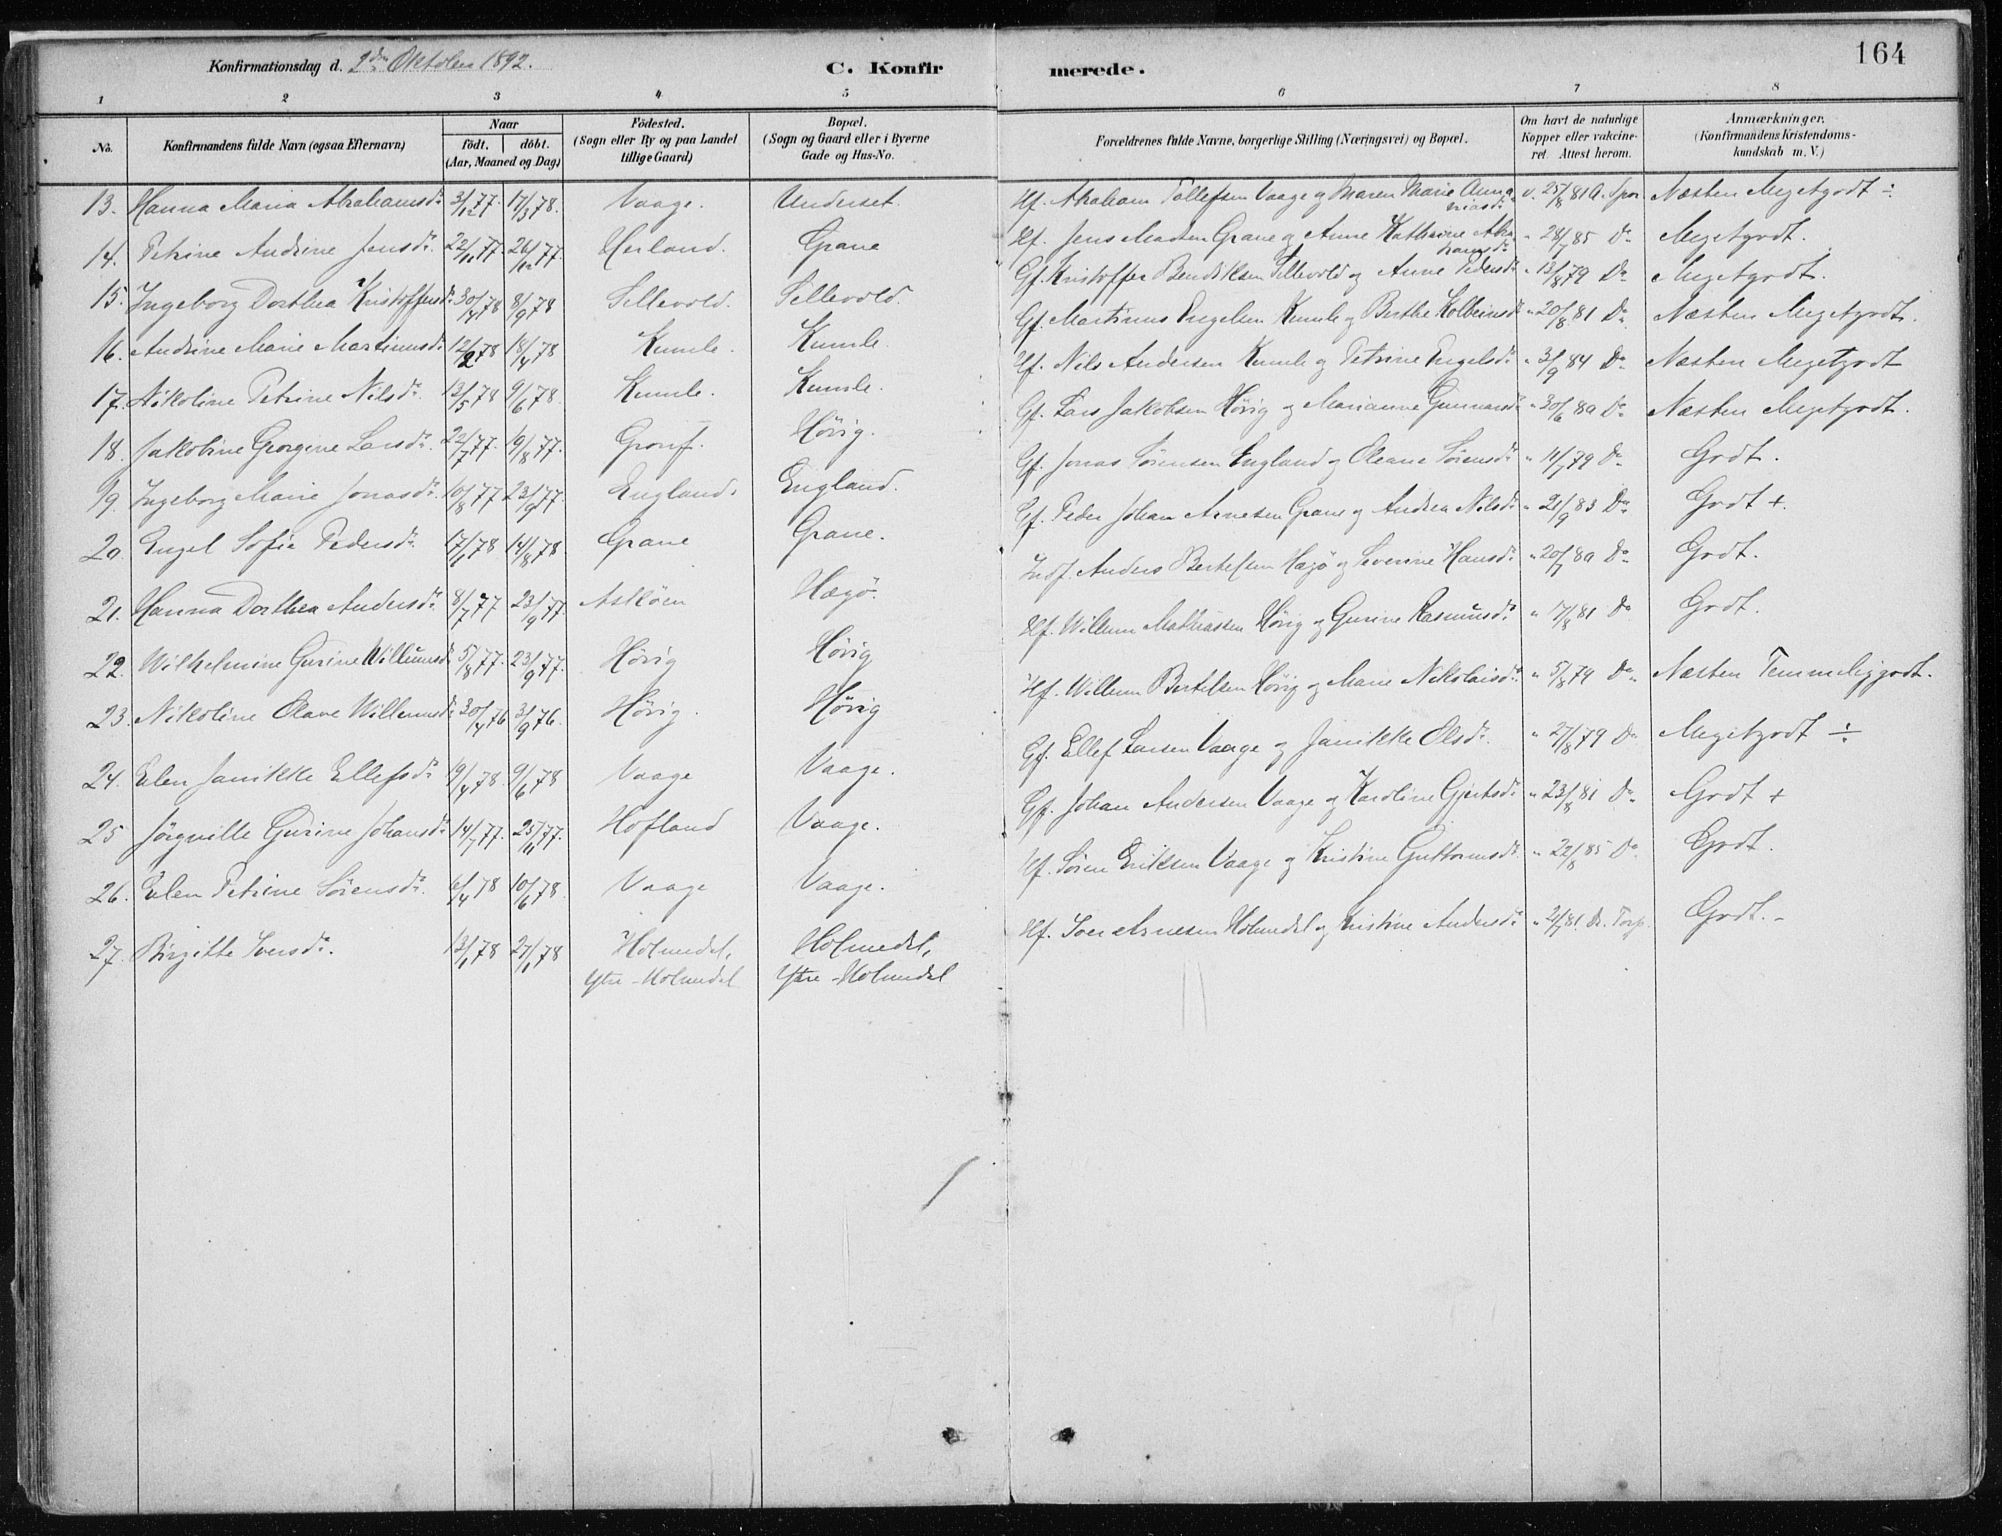 164
Konfirmationsdag d. 2den Oktober 1892. C. Konfirmerede.
1 2 3 4 5 6 7 8
No. Konfirmandens fulde Navn (ogsaa Efternavn) Naar født. døbt. (Aar, Maaned og Dag) Fødested. (Sogn eller By og paa Landet tillige Gaard) Bopæl. (Sogn og Gaard eller i Byerne Gade og Hus-No. Forældrenes fulde Navne, borgerlige Stilling (Næringsvei) og Bopæl. Om havt de naturlige Kopper eller vakcineret. Attest herom. Anmærkninger. (Konfirmandens Kristendomskundskab m. V.)
13. Hanna Maria Abrahamsdr. 3/12 77. 17/3 78. Vaage. Underset. Hf. Abraham Tollefsen Vaage og Maren Marie Annaniasdr. v. 25/8 81 A. Spor. Næsten Megetgodt ÷
14. Petrine Andrine Jensdr. 22/11 77. 26/12 77. Herland. Grane Hf. Jens Madsen Grane og Anne Kathrine Abrahamsdr. " 28/7 85 Do Megetgodt.
15. Ingeborg Dorthea Kristoffersdr. 30/4 78 8/9 78 Sellevold. Sellevold. Gf. Kristoffer Bendiksen Sellevold og Anne Pedersdr. " 13/8 79 Do Megetgodt.
16. Andrine Marie Martinusdr. 12/2 78 18/4 78 Kumle. Kumle. Gf. Martinus Engelsen Kumle og Berthe Kolbeinsdr. " 20/8 81 Do Næsten Megetgodt.
17. Nikoline Petrine Nilsdr. 13/5 78 9/6 78. Kumle. Kumle. Hf. Nils Andersen Kumle og Petrine Engelsdr. " 3/9 84 Do Næsten Megetgodt
18. Jakobine Georgine Larsdr. 22/7 77. 19/8 77. Høvig. Gf. Lars Jakobsen Høvig og Marianne Gunnarsdr. " 30/6 80 Do Næsten Megetgodt.
19. Ingeborg Marie Jonasdr. 10/8 77 23/9 77. England. England. Gf. Jonas Sørensen England og Oleane Sørensdr. " 11/7 79 Do Godt.
20. Engel Sofie Pedersdr. 17/1 78 14/8 78. Grane Grane. Gf. Peder Johan Arnesen Grane og Andrea Nilsdr. " 21/9 83 Do Godt +.
21. Hanna Dorthea Andersdr. 8/7 77 23/9 77. Askøen Hægø. Indf. Anders Bertelsen Hægø og Severine Hansdr. " 20/7 80 Do Godt.
22. Wilhelmine Gurine Willumsdr. 5/8 77. 23/9 77. Høvig Høvig Hf. Willum Mathiassen Høvig og Gurine Rasmusdr. " 17/8 81 Do Godt.
23. Nikoline Olave Willumsdr. 30/4 76 3/9 76. Høvig. Høvig Hf. Willum Bertelsen Høvig og Marie Nikolaisdr. " 5/8 79 Do Næsten Temmeliggodt.
24. Elen Janikke Ellefsdr. 19/4 78. 9/6 78 Vaage Vaage. Gf. Ellef Larsen Vaage og Janikke Olsdr. " 27/8 79 Do Megetgodt ÷
25 Jørgnille Gurine Johansdr. 14/7 77. 25/11 77. Hofland Vaage. Gf. Johan Andersen Vaage og Karoline Gjertsdr. " 23/8 81 Do Godt +
26. Elen Petrine Sørensdr. 6/4 78 10/6 78. Vaage Vaage. Hf. Søren Eriksen Vaage og Kristine Guttormsdr. " 22/8 85 Do. Godt.
27. Birgitte Iversdr. 13/1 78 27/1 78 Holmedal, Holmedal, Hf. Iver Arnesen Holmedal og Kristine Andersdr. " 21/7 81. Dr. Torp. Godt. -
Ytre-Holmedal Ytre-Holmedal